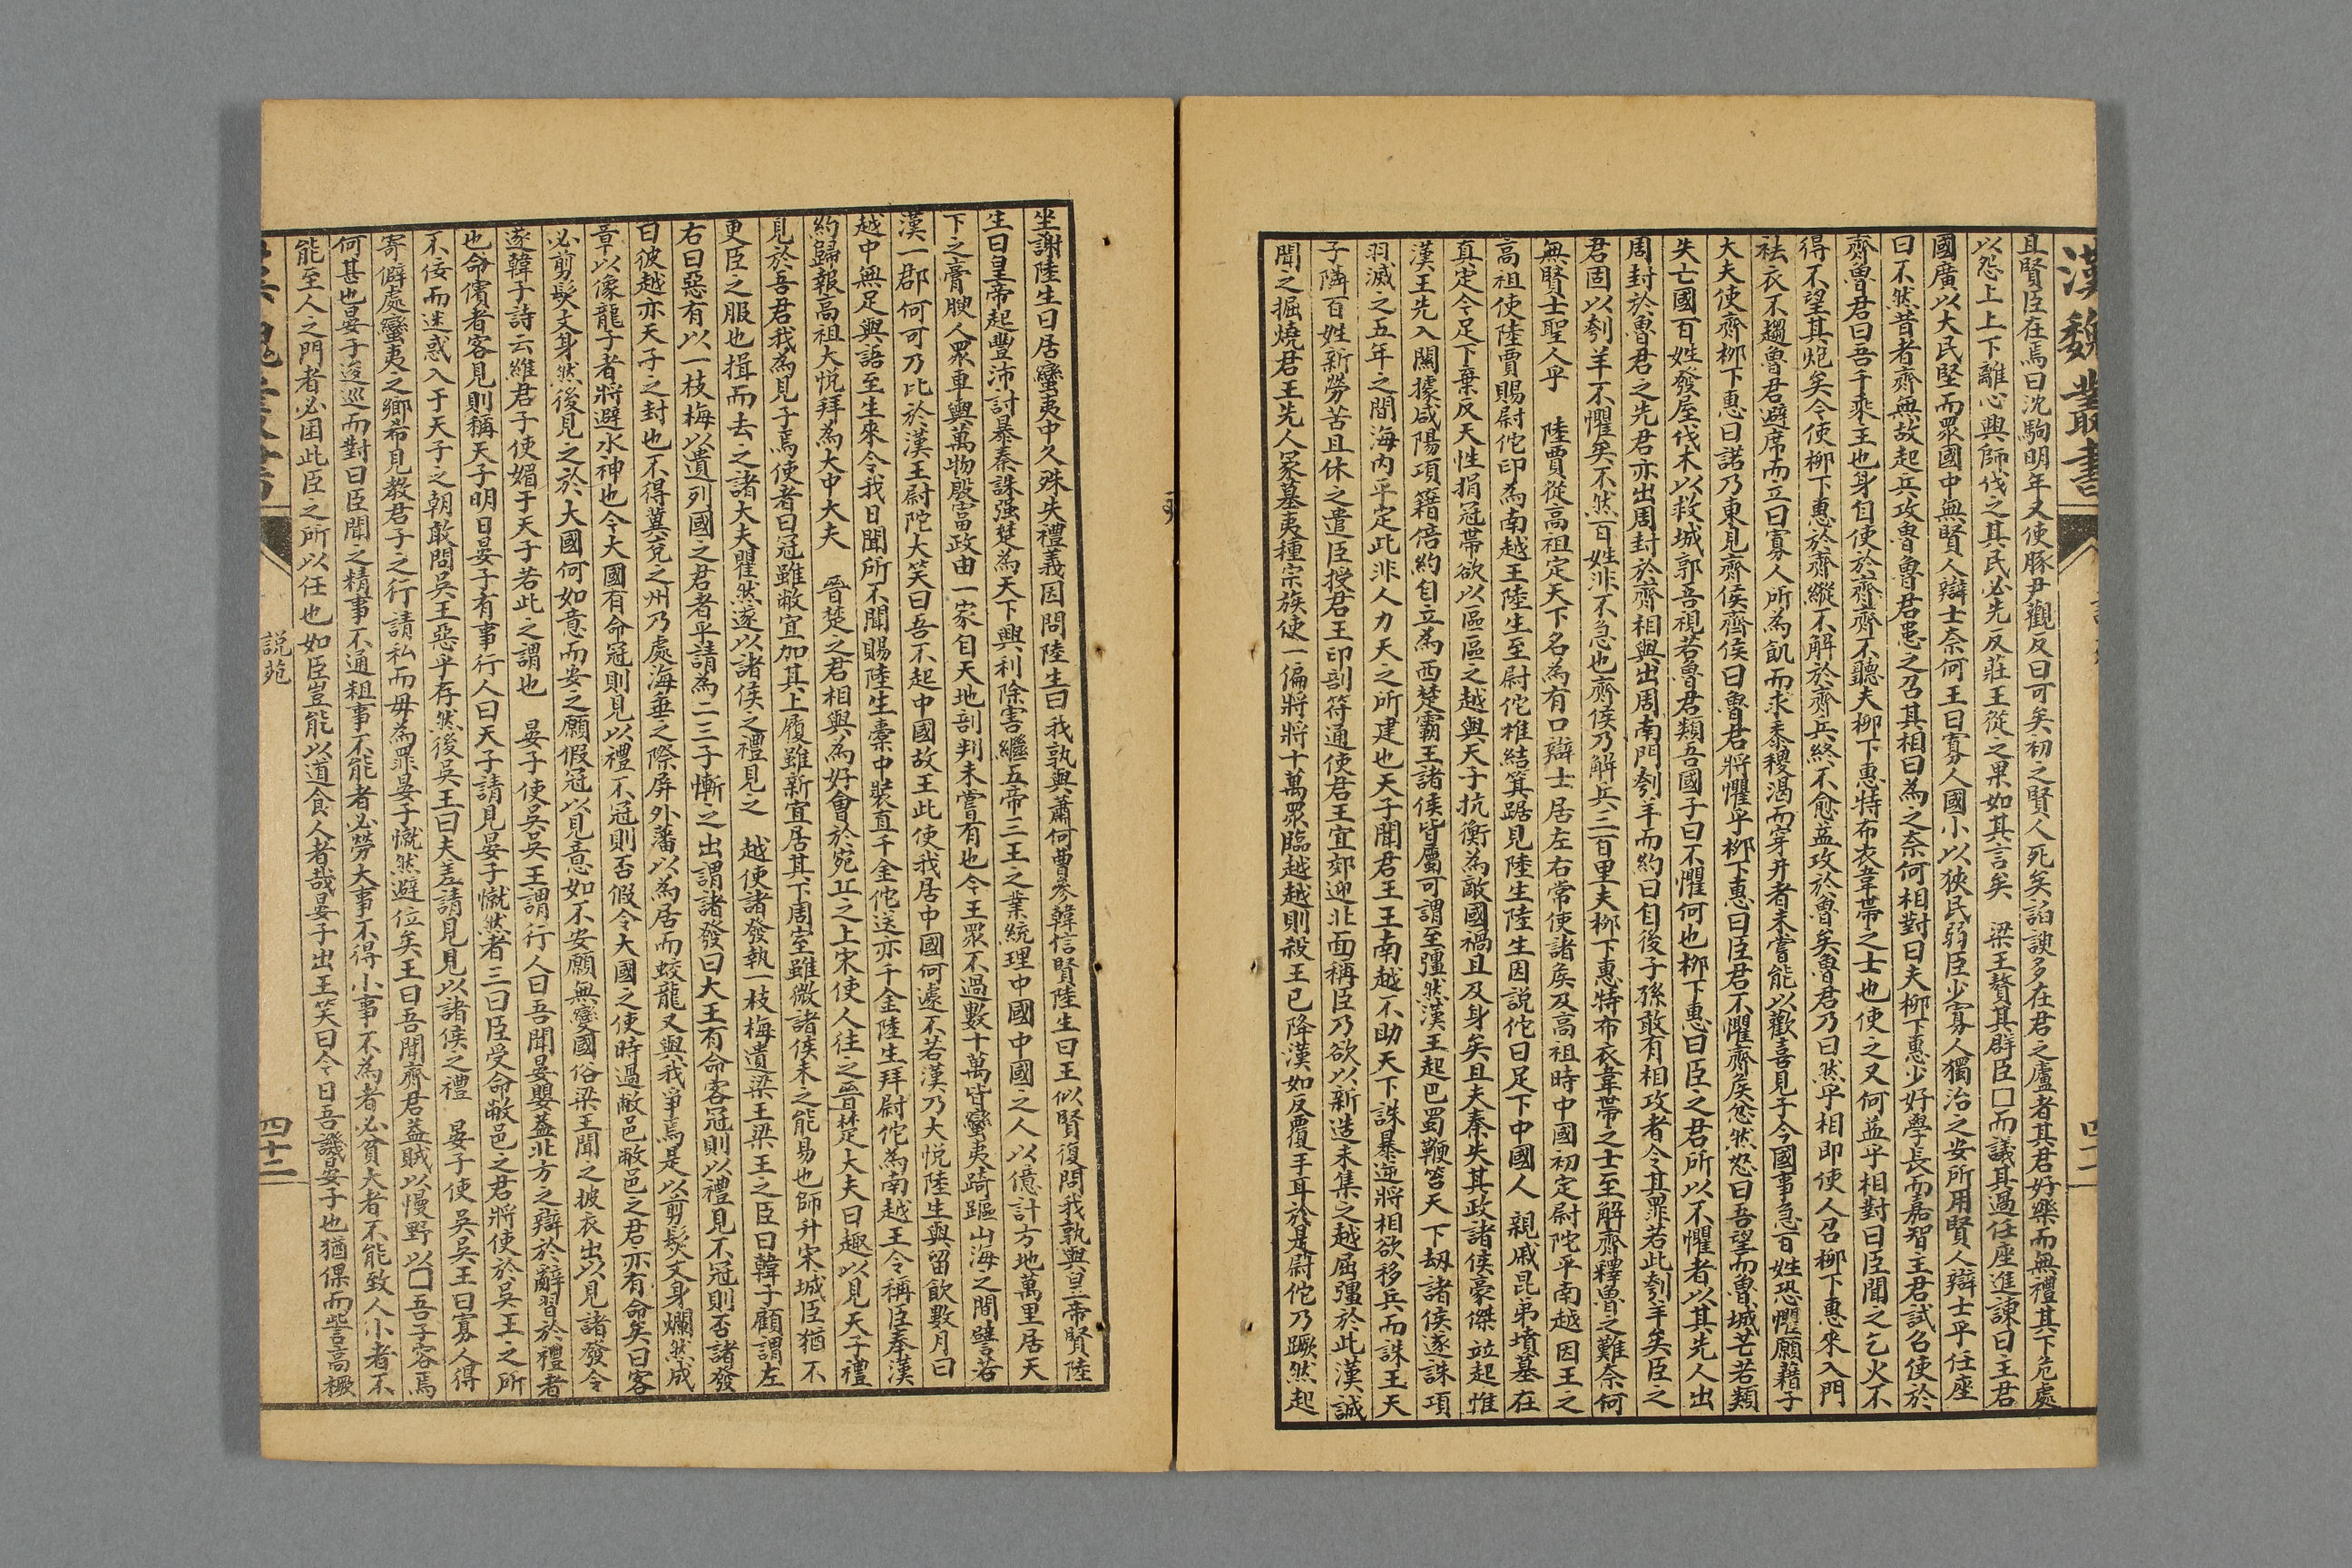 漢魏叢書
且賢臣在焉曰沈駒明年又使豚尹觀反曰可矣初之賢人死矣諂諛多在君之廬者其君好樂而無禮其下危處
以怨上上下離心興師伐之其民必先反莊王從之果如其言矣　梁王贅其群臣□而議其過任座進諫曰主君
國廣以大民堅而眾國中無賢人辯士奈何王曰寡人國小以狹民弱臣少寡人獨治之安所用賢人辯士乎任座
曰不然昔者齊無故起兵攻魯魯君患之召其相曰為之奈何相對曰夫柳下惠少好學長而嘉智主君試召使於
齊魯君曰吾千乘王也身自使於齊齊不聽夫柳下惠特布衣韋帶之士也使之又何益乎相對曰臣聞之乞火不
得不望其炮矣今使柳下惠於齊縱不解於齊兵終不愈益攻於魯矣魯君乃曰然乎相即使人召柳下惠來入門
袪衣不趨魯君避席而立曰寡人所為飢而求黍稷渴而穿井者未嘗能以歡喜見子今國事急百姓恐懼願藉子
大夫使齊柳下惠曰諾乃東見齊侯齊侯曰魯君將懼乎柳下惠曰臣君不懼齊侯忿然怒曰吾望而魯城芒若類
失亡國百姓發屋伐木以救城郭吾視若魯君類吾國子曰不懼何也柳下惠曰臣之君所以不懼者以其先人出
周封於魯君之先君亦出周封於齊相與出周南門刳羊而約曰自後子孫敢有相攻者令其罪若此刳羊矣臣之
君固以刳羊不懼矣不然百姓非不急也齊侯乃解兵三百里夫柳下惠特布衣韋帶之士至解齊釋魯之難奈何
無賢士聖人乎　陸賈從高祖定天下名為有口辯士居左右常使諸侯及高祖時中國初定尉陀平南越因王之
高祖使陸賈賜尉佗印為南越王陸生至尉佗椎結箕踞見陸生陸生因說佗曰足下中國人親戚昆弟墳墓在
真定今足下棄反天性捐冠帶欲以區區之越與天子抗衡為敵國禍且及身矣且夫秦失其政諸侯豪傑並起惟
漢王先入關據咸陽項籍倍約自立為西楚霸王諸侯皆屬可謂至彊然漢王起巴蜀鞭笞天下劫諸侯遂誅項
羽滅之五年之間海內平定此非人力天之所建也天子聞君王王南越不助天下誅暴逆將相欲移兵而誅王天
子憐百姓新勞苦且休之遣臣授君王印剖符通使君王宜郊迎北面稱臣乃欲以新造未集之越屈彊於此漢誠
聞之掘燒君王先人冢墓夷種宗族使一偏將將十萬眾臨越越則殺王已降漢如反覆手耳於是尉佗乃蹶然起
坐謝陸生曰居蠻夷中久殊失禮義因問陸生曰我孰與蕭何曹參韓信賢陸生曰王似賢復問我孰與皇帝賢陸
生曰皇帝起豐沛討暴秦誅強楚為天下興利除害繼五帝三王之業統理中國中國之人以億計方地萬里居天
下之膏腴人眾車輿萬物殷富政由一家自天地剖判未嘗有也今王眾不過數十萬皆蠻夷踦䧢山海之間譬若
漢一郡何可乃比於漢王尉陀大笑曰吾不起中國故王此使我居中國何遽不若漢乃大悅陸生與留飲數月曰
越中無足與語至生來令我日聞所不聞賜陸生橐中裝直千金佗送亦千金陸生拜尉佗為南越王令稱臣奉漢
約歸報高祖大悅拜為大中大夫　晉楚之君相與為好會於宛丘之上宋使人往之晉楚大夫曰趣以見天子禮
見於吾君我為見子焉使者曰冠雖敝宜加其上履雖新宜居其下周室雖微諸侯未之能易也師升宋城臣猶不
更臣之服也揖而去之諸大夫瞿然遂以諸侯之禮見之　越使諸發執一枝梅遺梁王梁王之臣曰韓子顧謂左
右曰惡有以一枝梅以遺列國之君者乎請為二三子慚之出謂諸發曰大王有命客冠則以禮見不冠則否諸發
曰彼越亦天子之封也不得冀兗之州乃處海垂之際屏外藩以為居而蛟龍又與我爭焉是以剪髮文身爛然成
章以像龍子者將避水神也今大國有命冠則見以禮不冠則否假令大國之使時過敝邑敝邑之君亦有命矣曰客
必剪髮文身然後見之於大國何如意而安之願假冠以見意如不安願無變國俗梁王聞之披衣出以見諸發令
逐韓子詩云維君子使媚于天子若此之謂也　晏子使吳吳王謂行人曰吾聞晏嬰蓋北方之辯於辭習於禮者
也命儐者客見則稱天子明日晏子有事行人曰天子請見晏子憱然者三曰臣受命敝邑之君將使於吳王之所
不佞而迷惑入于天子之朝敢問吳王惡乎存然後吳王曰夫差請見見以諸侯之禮　晏子使吳吳王曰寡人得
寄僻處蠻夷之鄉希見教君子之行請私而毋為罪晏子憱然避位矣王曰吾聞齊君蓋賊以慢野以□吾子容焉
何甚也晏子逡巡而對曰臣聞之精事不通粗事不能者必勞大事不得小事不為者必貧大者不能致人小者不
能至人之門者必困此臣之所以仕也如臣豈能以道食人者哉晏子出王笑曰今日吾譏晏子也猶倮而訾高橛
說苑
四十二